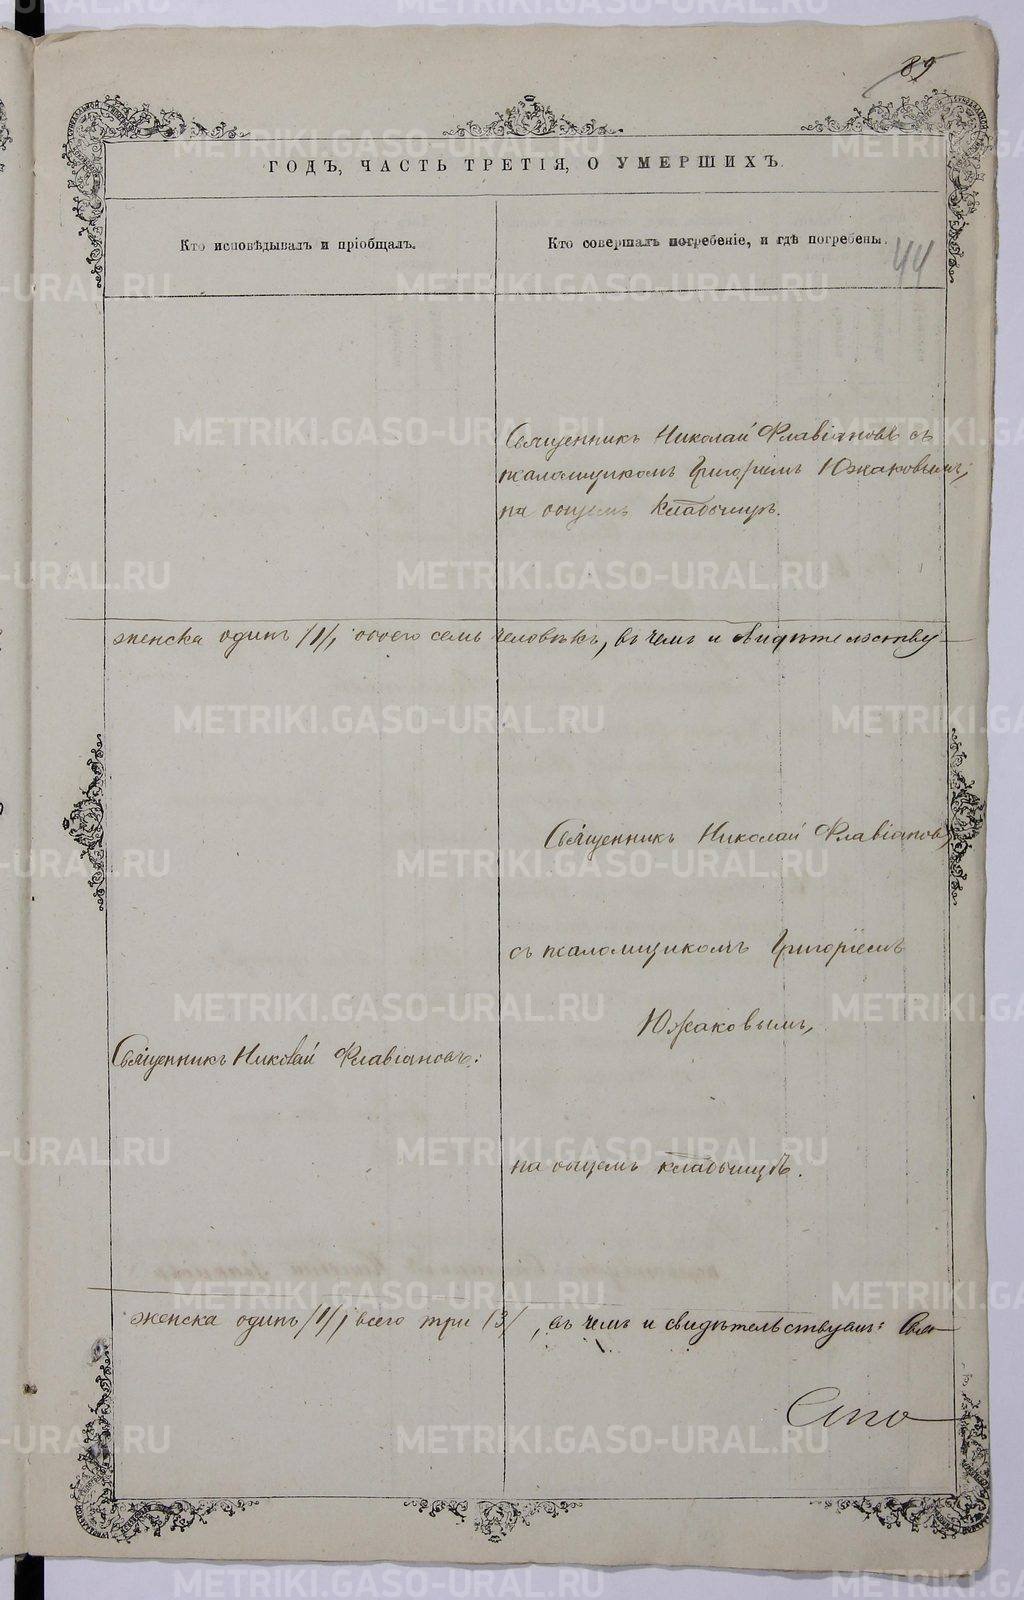 89
ГОДЪ, ЧАСТЬ ТРЕТІЯ, О УМЕРШИХЪ.
Кто исповѣдывалъ и пріобщалъ.
Кто совершалъ погребеніе, и гдѣ погребены.
44
Священникъ Николай Флавіановъ съ
псаломщикомъ Григоріемъ Южаковымъ,
на общемъ кладбищѣ.
женска одинъ /1/, обоего семь человѣкъ, въ чемъ и свидѣтельству-
Священникъ Николай Флавіановъ,
съ псаломщикомъ Григоріемъ
Южаковымъ,
Священникъ Николай Флавіановъ.
на общемъ кладбищѣ.
женска одинъ /1/, всего три /3/, въ чемъ и свидѣтельствуемъ: Свя-
METRIKI.GASO-URAL.RU